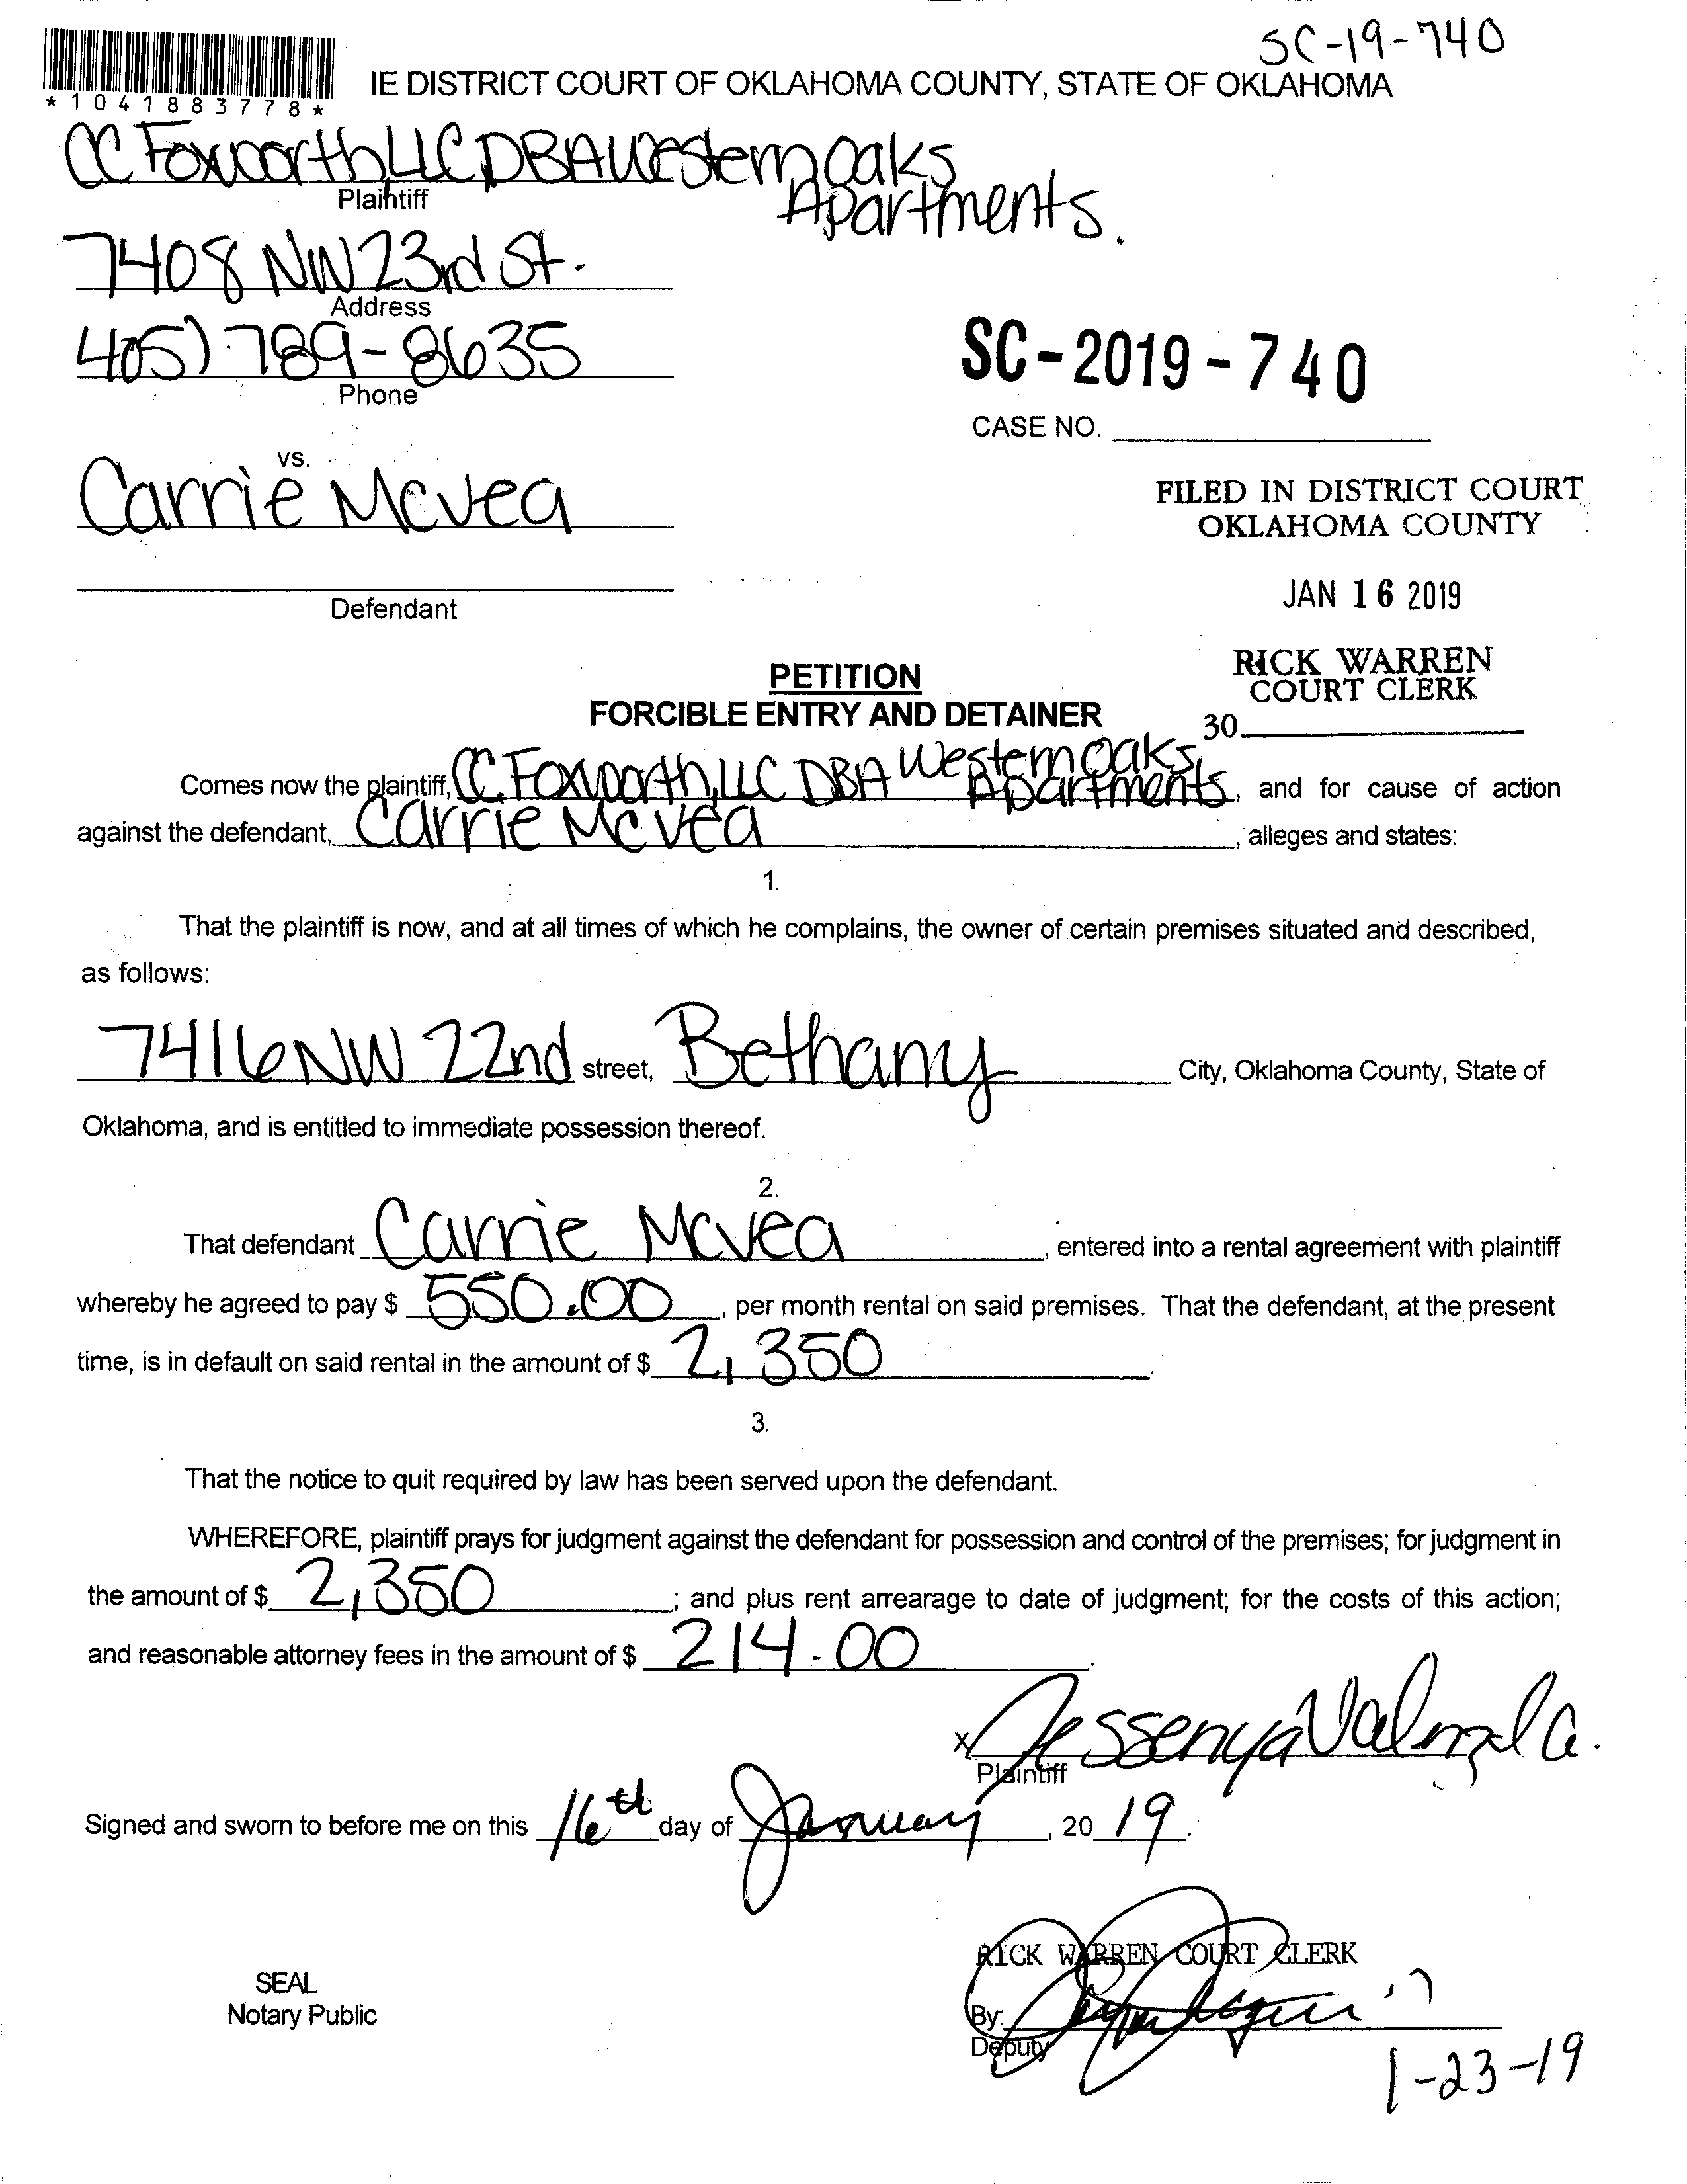 SC-19-740
IE DISTRICT COURT OF OKLAHOMA COUNTY, STATE OF OKLAHOMA
*1041883778*
CC Foxworth LLC DBA Western Oaks
Apartments.
Plaintiff
7408 NW 23rd St.
Address
405) 789-8635
Phone
SC-2019-740
CASE NO.
vs.
Carrie Mcvea
FILED IN DISTRICT COURT
OKLAHOMA COUNTY
JAN 16 2019
Defendant
RICK WARREN
COURT CLERK
30
PETITION
FORCIBLE ENTRY AND DETAINER
Comes now the plaintiff, CC Foxworth, LLC DBA Western Oaks Apartments, and for cause of action
against the defendant, Carrie Mcvea, alleges and states:
1.
That the plaintiff is now, and at all times of which he complains, the owner of certain premises situated and described,
as follows:
7416 NW 22nd street, Bethany City, Oklahoma County, State of
Oklahoma, and is entitled to immediate possession thereof.
2.
That defendant Carrie Mcvea, entered into a rental agreement with plaintiff
whereby he agreed to pay $ 550.00, per month rental on said premises. That the defendant, at the present
time, is in default on said rental in the amount of $ 2,350.
3.
That the notice to quit required by law has been served upon the defendant.
WHEREFORE, plaintiff prays for judgment against the defendant for possession and control of the premises; for judgment in
the amount of $ 2,350; and plus rent arrearage to date of judgment; for the costs of this action;
and reasonable attorney fees in the amount of $ 214.00.
x Jessenya
Plaintiff
Signed and sworn to before me on this 16th day of January, 2019.
RICK WARREN COURT CLERK
SEAL
Notary Public
By:
Deputy
1-23-19